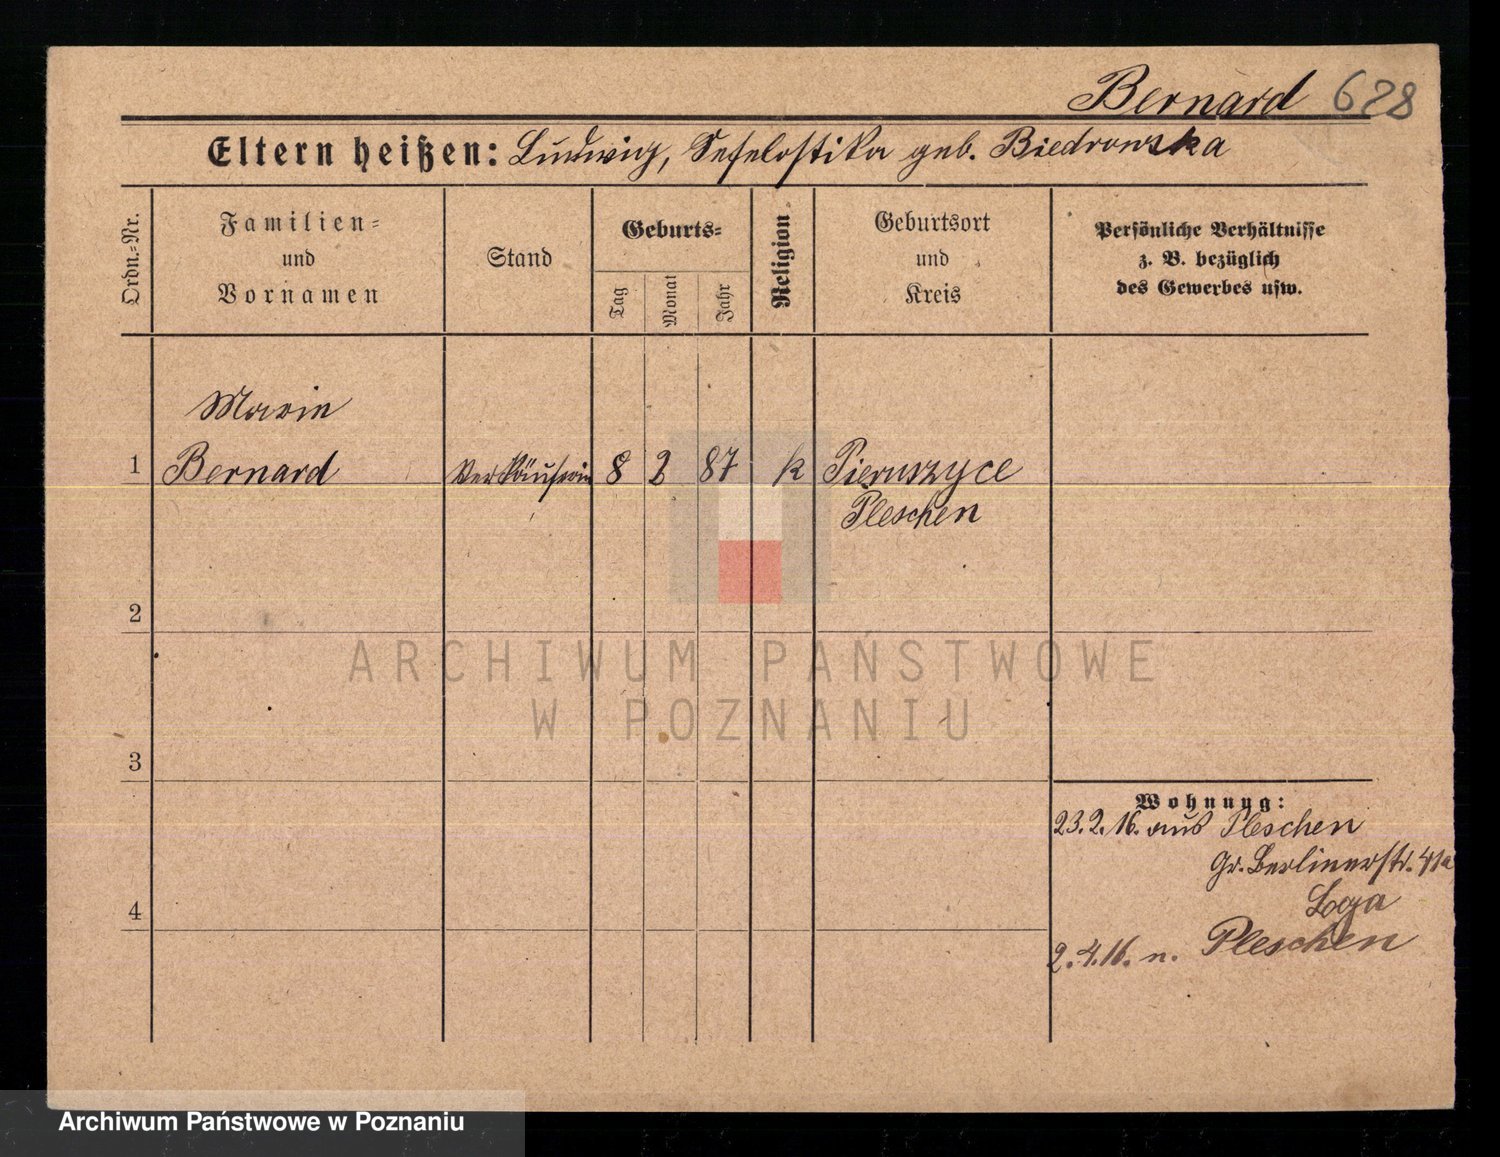 Bernard 628
Eltern heißen: Ludwig, geb. Biedrowska
Ordn.-Nr.
Familien- und Vornamen
Stand
Geburts-
Tag
Monat
Jahr
Religion
Geburtsort und Kreis
Persönliche Verhältnisse
z. B. bezüglich
des Gewerbes usw.
Marie
1 Bernard Verkäuferin 8 2 87 k Pieruszyce
Pleschen
2
3
4
Wohnung:
23.2.16. aus Pleschen
Gr. Berlinerstr. 41a
Loga
2.4.16. n. Pleschen
ARCHIWUM PAŃSTWOWE
W POZNANIU
Archiwum Państwowe w Poznaniu